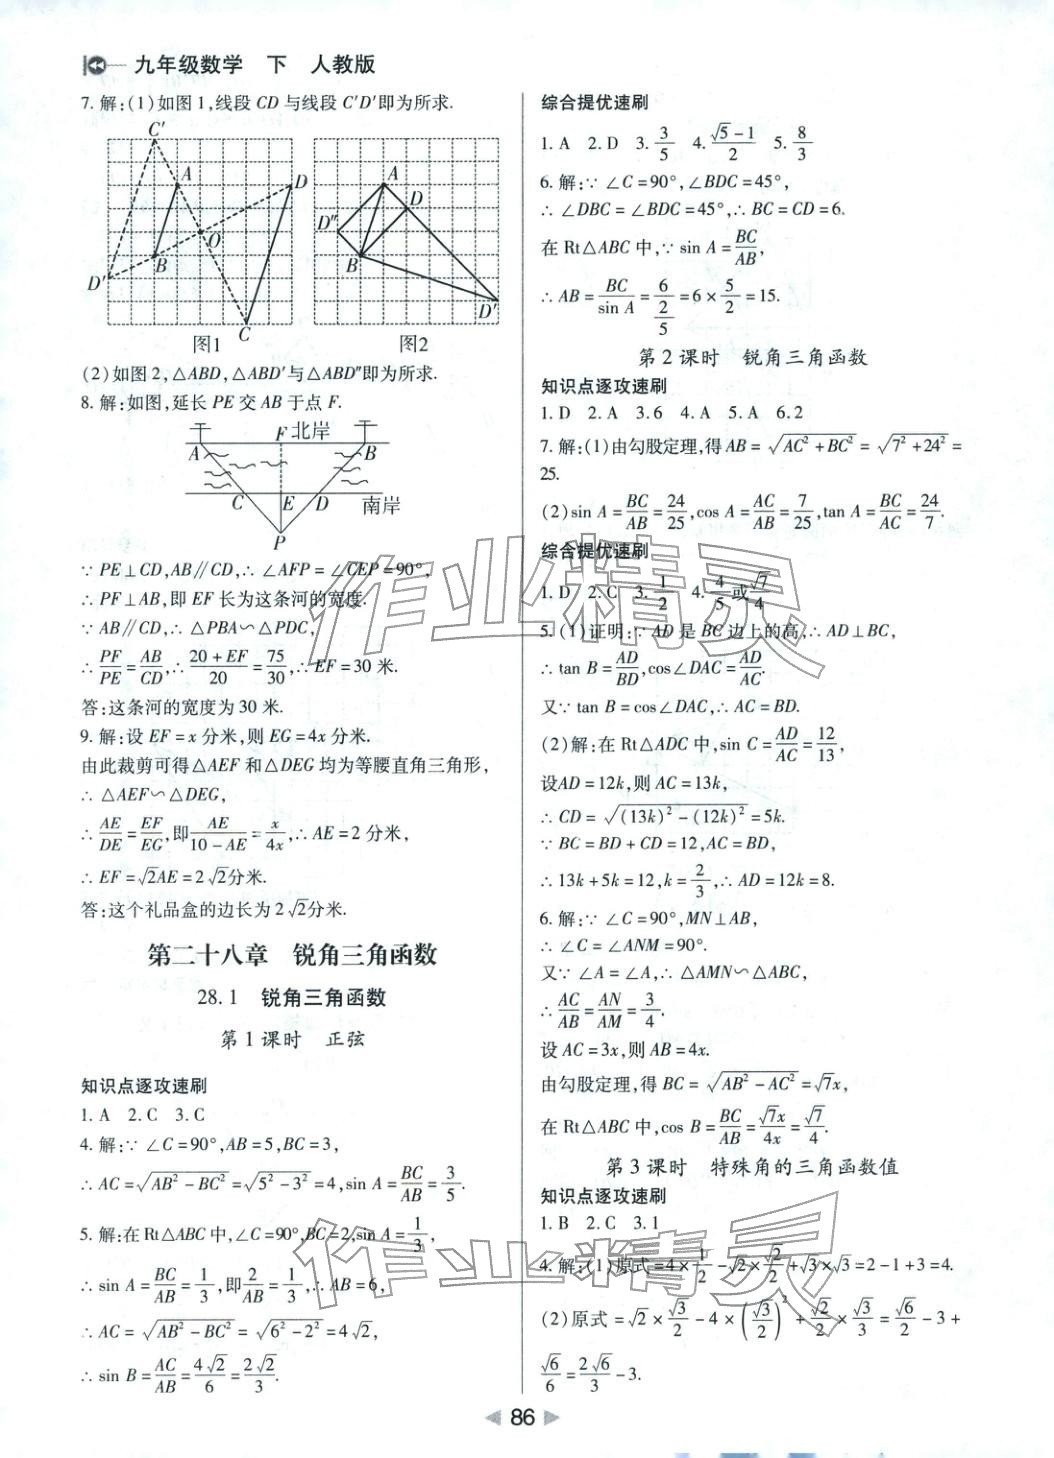 九年级数学 下 人教版
7. 解:(1)如图1,线段CD与线段C′D′即为所求.
C′
A
D
O
B
D′
C
图1
A
D
D″
B
D′
图2
(2)如图2,△ABD,△ABD′与△ABD″即为所求.
8. 解:如图,延长PE交AB于点F.
F 北岸
A B
C E D 南岸
P
∵PE⊥CD,AB∥CD,∴∠AFP=∠CEP=90°,
∴PF⊥AB,即EF长为这条河的宽度.
∵AB∥CD,∴△PBA∽△PDC,
∴PF/PE=AB/CD,∴(20+EF)/20=75/30,∴EF=30米.
答:这条河的宽度为30米.
9. 解:设EF=x分米,则EG=4x分米.
由此裁剪可得△AEF和△DEG均为等腰直角三角形,
∴△AEF∽△DEG,
∴AE/DE=EF/EG,即AE/(10-AE)=x/4x,∴AE=2分米,
∴EF=√2AE=2√2分米.
答:这个礼品盒的边长为2√2分米.
第二十八章 锐角三角函数
28.1 锐角三角函数
第1课时 正弦
知识点逐攻速刷
1. A 2. C 3. C
4. 解:∵∠C=90°,AB=5,BC=3,
∴AC=√(AB²-BC²)=√(5²-3²)=4,sin A=BC/AB=3/5.
5. 解:在Rt△ABC中,∠C=90°,BC=2,sin A=1/3,
∴sin A=BC/AB=1/3,即2/AB=1/3,∴AB=6,
∴AC=√(AB²-BC²)=√(6²-2²)=4√2,
∴sin B=AC/AB=4√2/6=2√2/3.
综合提优速刷
1. A 2. D 3. 3/5 4. (√5-1)/2 5. 8/3
6. 解:∵∠C=90°,∠BDC=45°,
∴∠DBC=∠BDC=45°,∴BC=CD=6.
在Rt△ABC中,∵sin A=BC/AB,
∴AB=BC/sin A=6/(2/5)=6×5/2=15.
第2课时 锐角三角函数
知识点逐攻速刷
1. D 2. A 3. 6 4. A 5. A 6. 2
7. 解:(1)由勾股定理,得AB=√(AC²+BC²)=√(7²+24²)=
25.
(2)sin A=BC/AB=24/25,cos A=AC/AB=7/25,tan A=BC/AC=24/7.
综合提优速刷
1. D 2. C 3. 1/2 4. 4/5或√7/4
5. (1)证明:∵AD是BC边上的高,∴AD⊥BC,
∴tan B=AD/BD,cos∠DAC=AD/AC.
又∵tan B=cos∠DAC,∴AC=BD.
(2)解:在Rt△ADC中,sin C=AD/AC=12/13,
设AD=12k,则AC=13k,
∴CD=√((13k)²-(12k)²)=5k.
∵BC=BD+CD=12,AC=BD,
∴13k+5k=12,k=2/3,∴AD=12k=8.
6. 解:∵∠C=90°,MN⊥AB,
∴∠C=∠ANM=90°.
又∵∠A=∠A,∴△AMN∽△ABC,
∴AC/AB=AN/AM=3/4.
设AC=3x,则AB=4x.
由勾股定理,得BC=√(AB²-AC²)=√7x,
在Rt△ABC中,cos B=BC/AB=√7x/4x=√7/4.
第3课时 特殊角的三角函数值
知识点逐攻速刷
1. B 2. C 3. 1
4. 解:(1)原式=4×1/2-√2×√2/2+√3×√3=2-1+3=4.
(2)原式=√2×√3/2-4×(√3/2)²+√2/2×√3/3=√6/2-3+
√6/6=2√6/3-3.
86
作业精灵
作业精灵